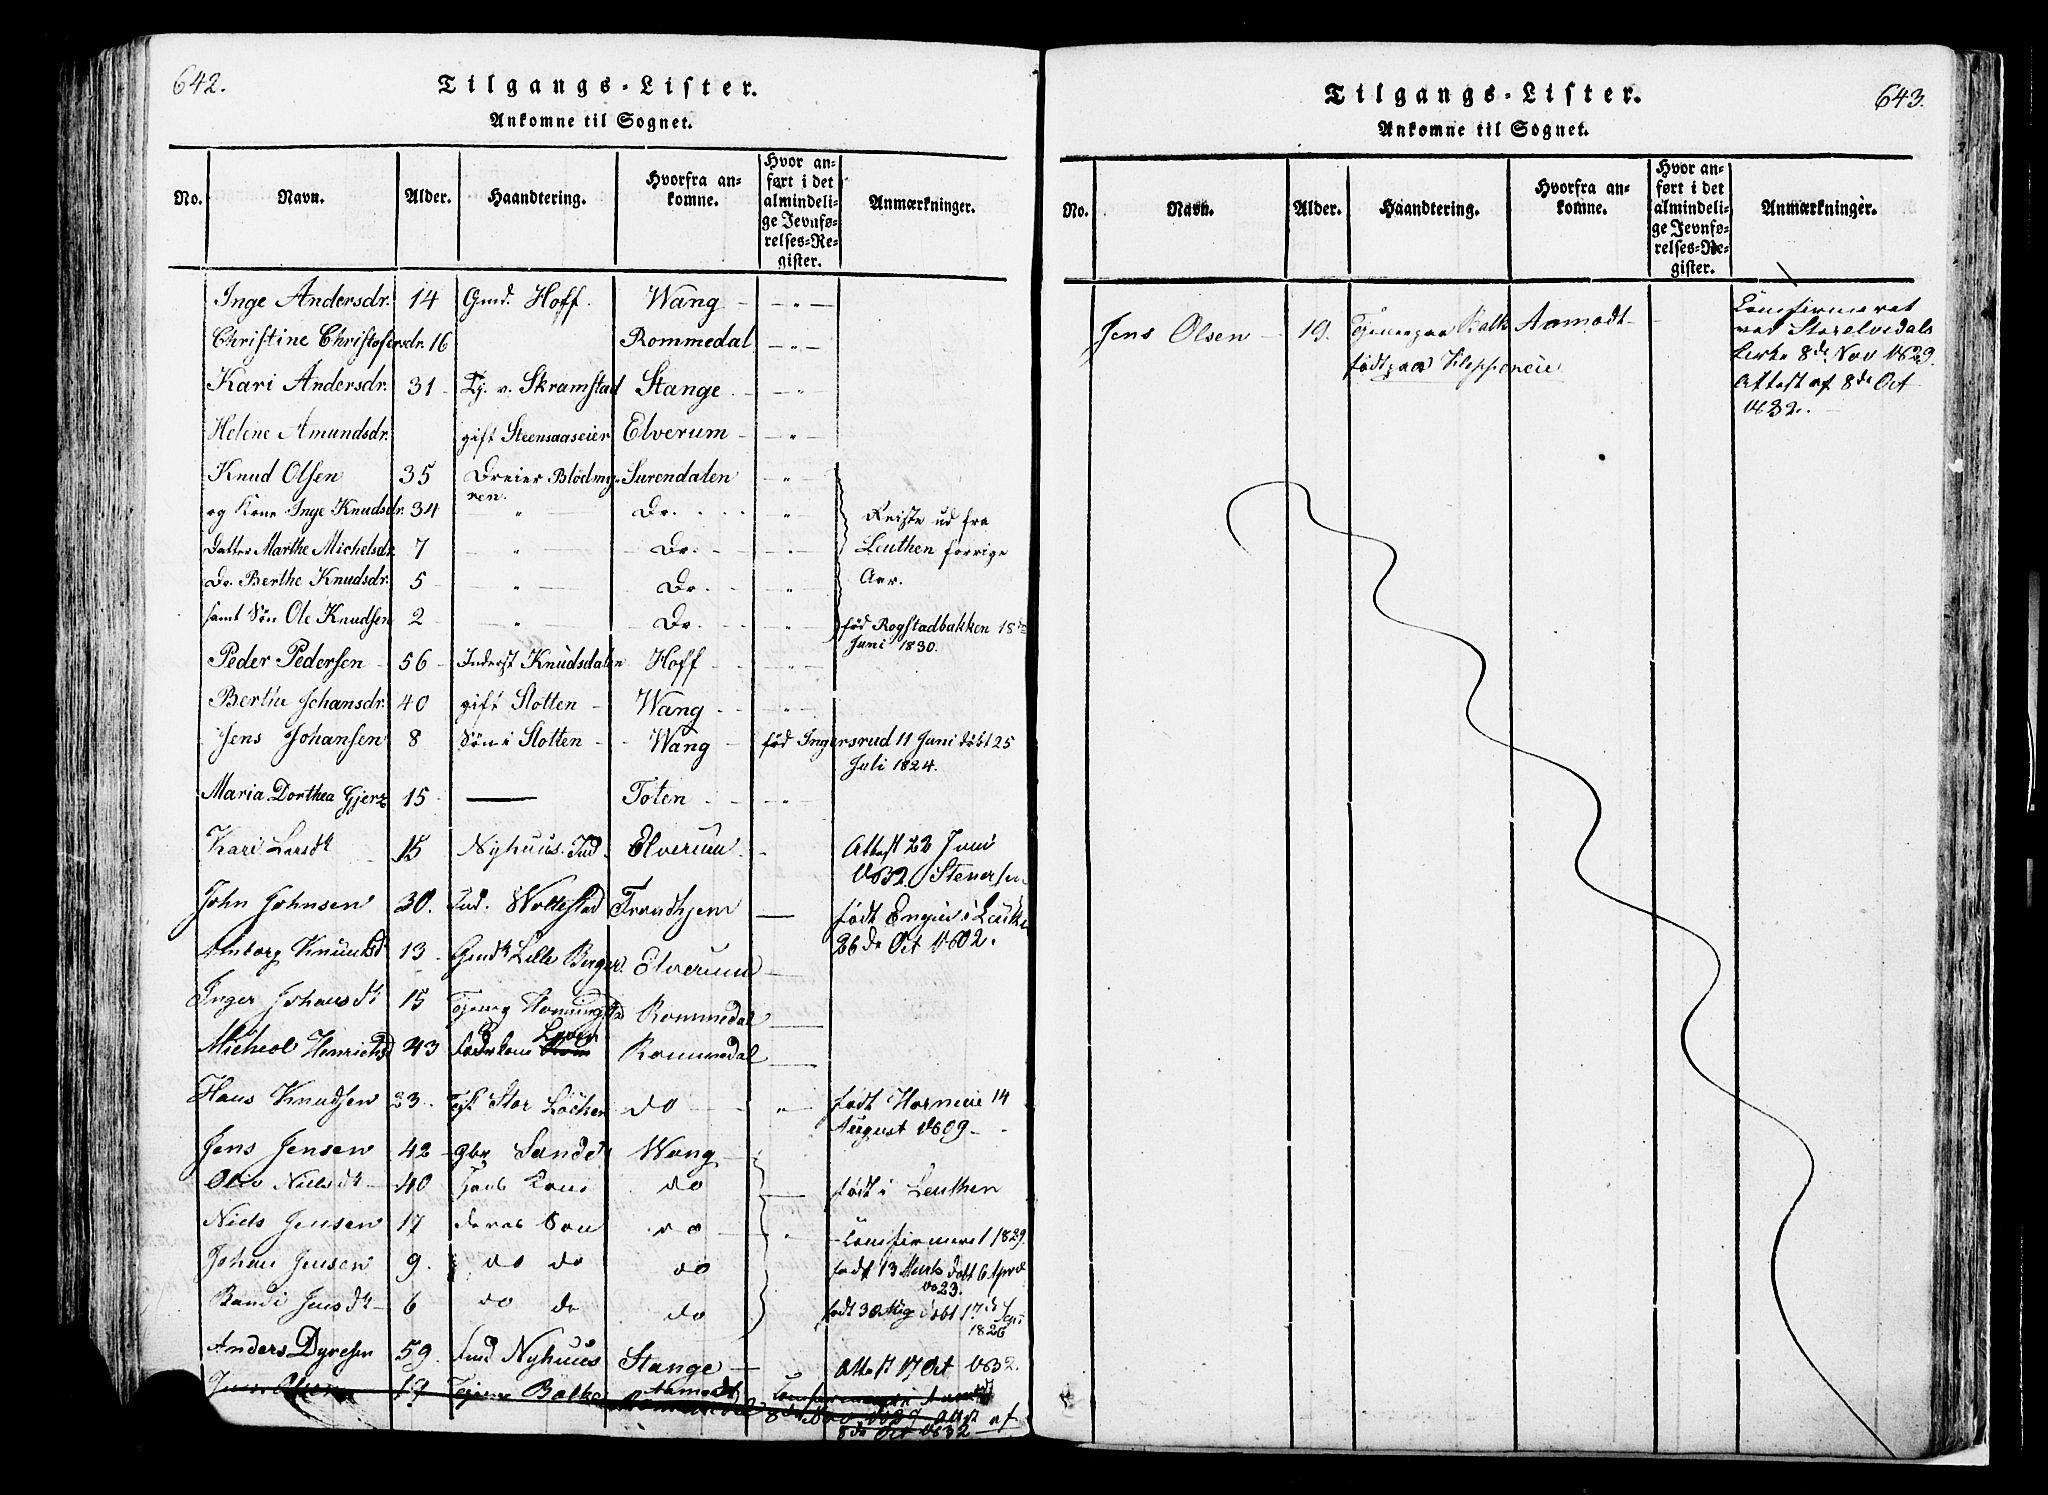 642.
Tilgangs-Lister.
Ankomne til Sognet.
No. Navn. Alder. Haandtering. Hvorfra ankomne. Hvor anført i det almindelige Jevnførelses-Register. Anmærkninger.
Inge Andersdr. 14 Gmd. Hoff. Wang - " -
Christine Christofersdr. 16 Rommedal - " -
Kari Andersdr. 31 Tj. v. Skramstad Stange - " -
Helene Amundsdr. gift Steensaaseier Elverum - " -
Knud Olsen 35 Dreier Blödmy- Surendalen "
ren.
og Kone Inge Knudsdr. 34 " Do. " Reiste ud fra
Datter Marthe Michelsdr. 7 " Do. " Leuthen forrige
Do. Berthe Knudsdr. 5 " Do. " Aar.
samt Søn Ole Knudsen 2 " Do. " fød Rogstadbakken 18de
Juni 1830.
Peder Pedersen 56 Inderst Knudsdalen Hoff "
Berthe Johansdr. 40 gift Slotten Wang "
Jens Johansen 8 Søn i Slotten Wang fød Ingersrud 11 Juni døbt 25
Juli 1824.
Maria Dorthea Gjerz 15 — Toten - " -
Kari Larsdt 15 Nyhuus. Ind. Elverum Attest 22 Juni
1832. Stenersen
John Johnsen 30. Ind. Trondhjem — født i
26de Oct 1802.
13 Gmdr Lille Berger. Elverum —
Inger Johansdt 15 Rommedal —
43 Rommedal —
Hans Knudsen 23. Stor Løchen do " født Horneie 14
August 1809 -
Jens Jensen 42 gbr Sande Wang
Nielsdt 40 hans Kone do — født i Leuthen
Niels Jensen 17 deres Søn do " Confirmeret 1829.
Johan Jensen 9. do do do født 13 Marts døbt 6 April
1823.
Randi Jensdt 6 do do do født 30 Aug døbt 17de
1826
Anders Dyresen 59. Ind Nyhuus Stange — Attest 17 Oct 1832.
19 Tjener Balke Aamodt
8de Nov 1829 Attest af
8de Oct 1832
643.
Tilgangs-Lister.
Ankomne til Sognet.
No. Navn. Alder. Haandtering. Hvorfra ankomne. Hvor anført i det almindelige Jevnførelses-Register. Anmærkninger.
Jens Olsen 19. Tjener paa Balke Aamodt Confirmeret
født paa ved Storelvedals
Kirke 8de Nov 1829.
Attest af 8de Oct
1832.